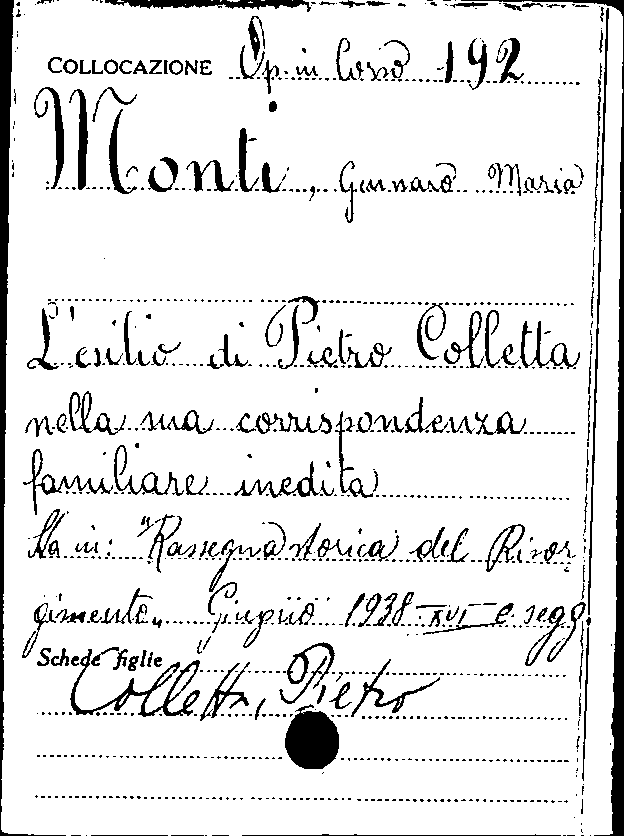 COLLOCAZIONE Op. in Corso 192
Monti, Gennaro Maria
L'esilio di Pietro Colletta
nella sua corrispondenza
familiare inedita
Sta in: "Rassegna storica del Risor-
gimento" Giugno 1938-XVI e segg.
Schede figlie
Colletta, Pietro